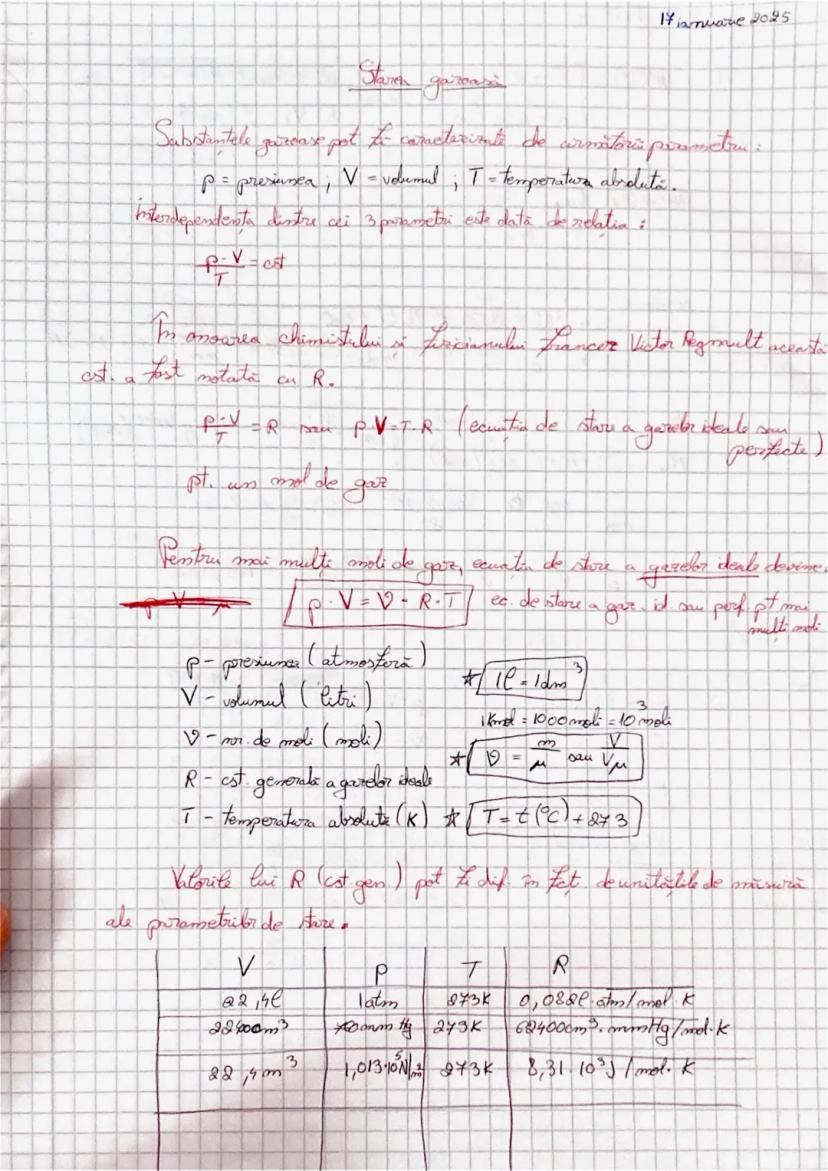 17 ianuarie 2025
Starea gazoasă
Substanțele gazoase pot fi caracterizate de următorii parametrii:
p = presiunea ; V = volumul ; T = temperatura absolută.
Interdependența dintre cei 3 parametri este dată de relația :
p·V/T = cst
În onoarea chimistului și fizicianului francez Victor Regnault această
cst. a fost notată cu R.
p·V/T = R sau p·V=T·R (ecuația de stare a gazelor ideale sau
perfecte)
pt. un mol de gaz
Pentru mai mulți moli de gaz, ecuația de stare a gazelor ideale devine.
p·V = ν·R·T ec. de stare a gaz. id. sau perf. pt mai
mulți moli
p - presiunea (atmosferă) * 1l = 1dm³
V - volumul (litri) 1Kmol = 1000 moli = 10³ moli
ν - nr. de moli (moli) * ν = m/μ sau V/Vμ
R - cst. generală a gazelor ideale
T - temperatura absolută (K) * T = t(°C) + 273
Valorile lui R (cst. gen.) pot fi dif. în fct. de unitățile de măsură
ale parametrilor de stare.
V p T R
22,4l 1atm 273K 0,082l·atm/mol·K
22400cm³ mmHg 273K 62400cm³·mmHg/mol·K
22,4m³ 1,013·10⁵N/m² 273K 8,31·10³J/mol·K